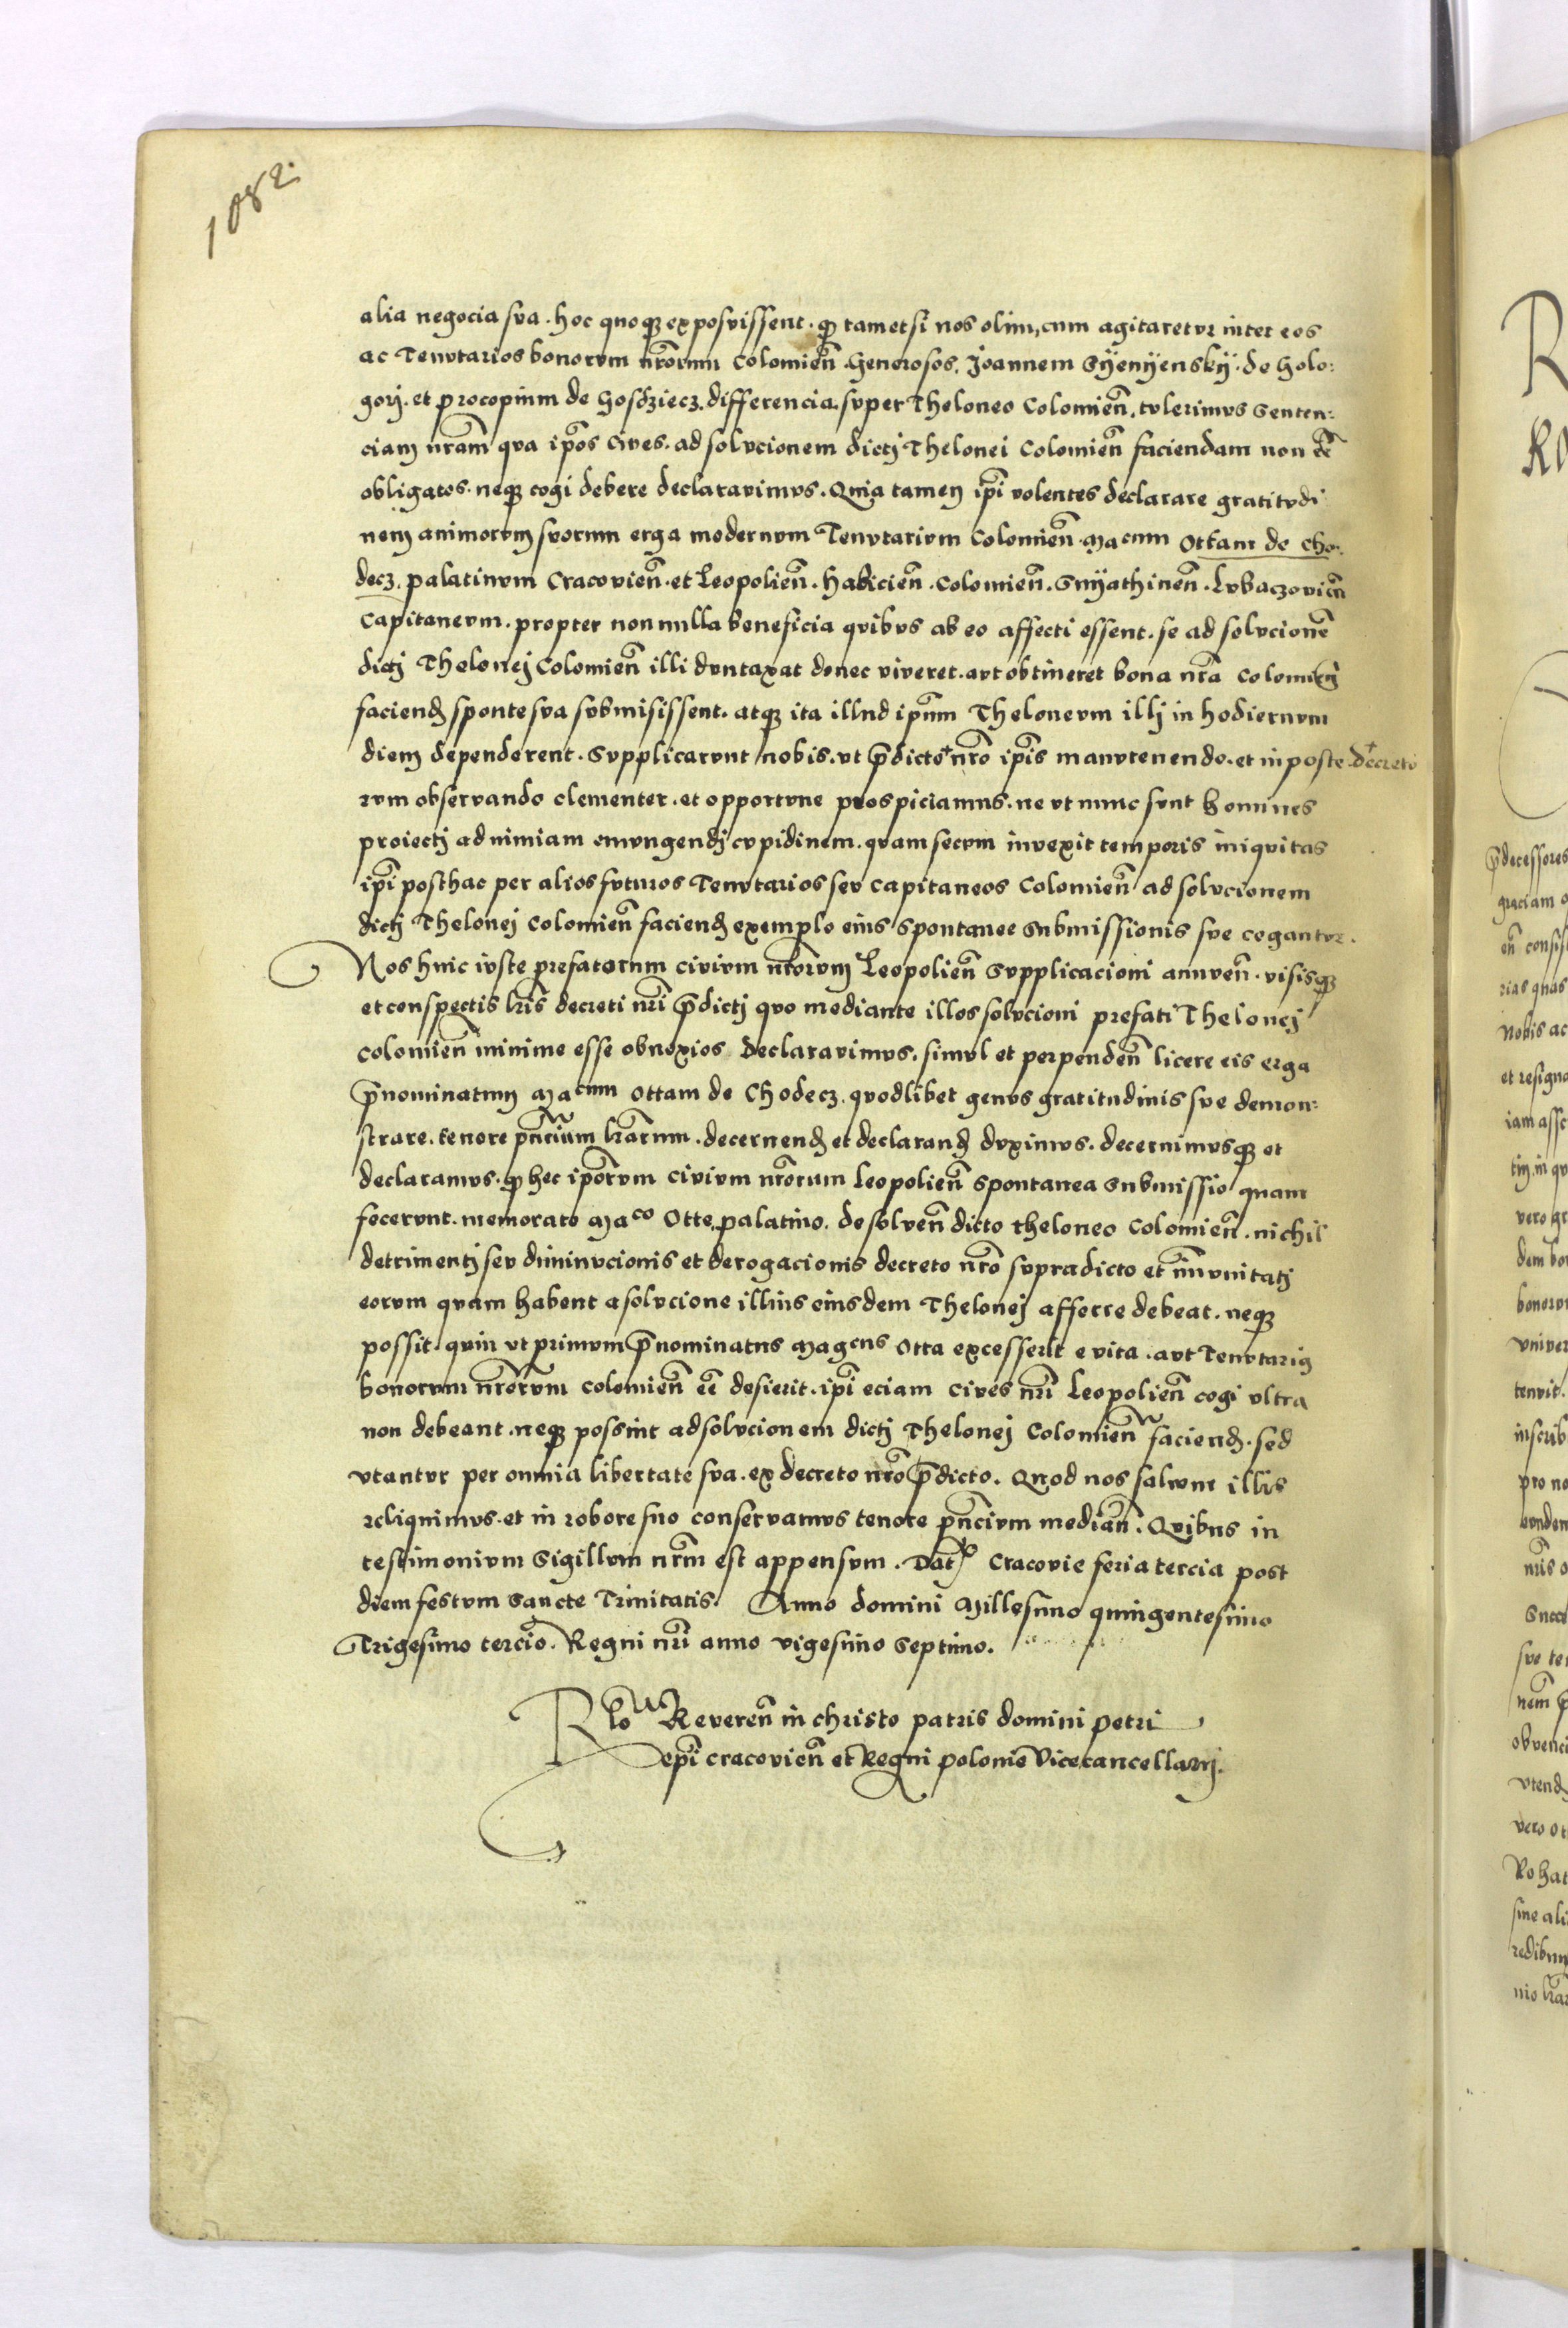 1082.
alia negocia sva. hoc quoqꝫ exposvissent. qꝫ tametsi nos olim, cum agitaretvr inter eos
ac Tenvtarios bonorvm nr̃orum Colomieñ. Generosos. Joannem Syenyensky. de Holo:
gory. et procopium de Gosdziecz. differencia. svper Theloneo Colomieñ. tvlerimvs Senten:
ciam nr̃am qva ip̃os Cives. ad solvcionem dictj Thelonei Colomieñ faciendam non eẽ
obligatos. neqꝫ cogi debere declaravimvs. Quia tamen ip̃i volentes declarare gratitvdi
nem animorvm svorum erga modernvm Tenvtarivm Colomieñ. Macum Ottam de Cho:
decz. palatinvm Cracovieñ. et Leopolieñ. Halicieñ. Colomieñ. Snyathineñ. Lvbaczovieñ
Capitanevm. propter nonnulla beneficia qvibvs ab eo affecti essent. se ad solvcionẽ
dictj Thelonej Colomieñ illi dvntaxat donec viveret. avt obtineret bona nr̃a Colomieñ
faciend̃ sponte sva svbmisissent. atqꝫ ita illud ip̃um Thelonevm illj in hodiernvm
diem dependerent. Svpplicarvnt nobis. vt p̃dicto + nr̃o ip̃is manvtenendo. et in poste + decreto
rvm observando clementer. et opportvne prospiciamus. ne vt nunc svnt homines
proiectj ad nimiam emvngendj cvpidinem. qvam secvm invexit temporis iniqvitas
ip̃i posthac per alios fvturos Tenvtarios sev Capitaneos Colomieñ ad solvcionem
dictj Thelonej Colomieñ faciend̃ exemplo eius spontanee submissionis sve cogantvr.
Nos huic ivste prefatorum civivm nr̃orvm Leopolieñ Svpplicacioni annveñ. visisqꝫ
et conspectis lr̃is decreti nr̃i p̃dictj qvo mediante illos solvcioni prefati Thelonej
Colomieñ minime esse obnoxios declaravimvs. simvl et perpendeñ licere eis erga
p̃nominatum Macum Ottam de Chodecz. qvodlibet genvs gratitudinis sve demon:
strare. tenore p̃ncium lr̃arum. decernend̃ et declarand̃ dvximvs. decernimvsqꝫ et
declaramvs. qꝫ hec ip̃orvm civivm nr̃orum Leopolieñ Spontanea Submissio quam
fecervnt. memorato Maco Otte, palatino. de solveñ dicto theloneo Colomieñ. nichil
detrimentj sev diminvcionis et derogacionis decreto nr̃o svpradicto et im̃vnitatj
eorvm qvam habent a solvcione illius eiusdem Thelonej afferre debeat. neqꝫ
possit. qvin vt primvm p̃nominatus Magcus Otta excesserit e vita. avt Tenvtarig
bonorvm nr̃orvm Colomieñ eẽ desierit. ip̃i eciam Cives nr̃i Leopolieñ cogi vltra
non debeant. neqꝫ possint ad solvcionem dictj Thelonej Colomieñ faciend̃. sed
vtantvr per omnia libertate sva. ex decreto nr̃o p̃dicto. Quod nos salvvm illis
reliquimvs. et in robore suo conservamvs tenore p̃ncivm mediañ. Qvibus in
testimonivm Sigillvm nr̃m est appensvm. Dat̃ Cracovie feria tercia post
diem festvm Sancte Trinitatis. Anno domini Millesimo quingentesimo
Trigesimo tercio. Regni nr̃i anno vigesimo Septimo.
Rlo Revereñ in christo patris domini petri
ep̃i cracovieñ et Regni polonie Vicecancellarij.